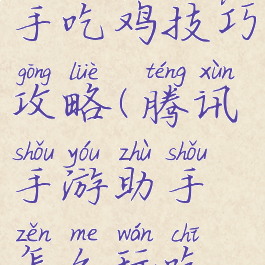 手吃鸡技巧
gōng lüè téng xùn
攻略(腾讯
shǒu yóu zhù shǒu
手游助手
zěn me wán chī
怎么玩吃